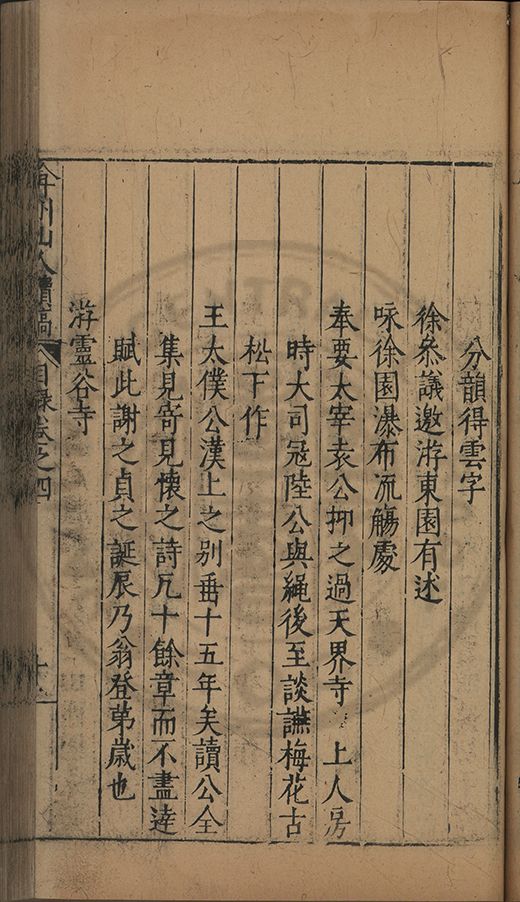 分韻得雲字
徐叅議邀游東園有述
咏徐園瀑布流觴處
奉要太宰袁公抑之過天界寺上人房
時大司冦陸公與繩後至談讌梅花古
松下作
王太僕公漢上之别垂十五年矣讀公全
集見寄見懷之詩凡十餘章而不盡逹
賦此謝之貞之誕辰乃翁登第歲也
游靈谷寺
弇州山人續稿 目録卷之四